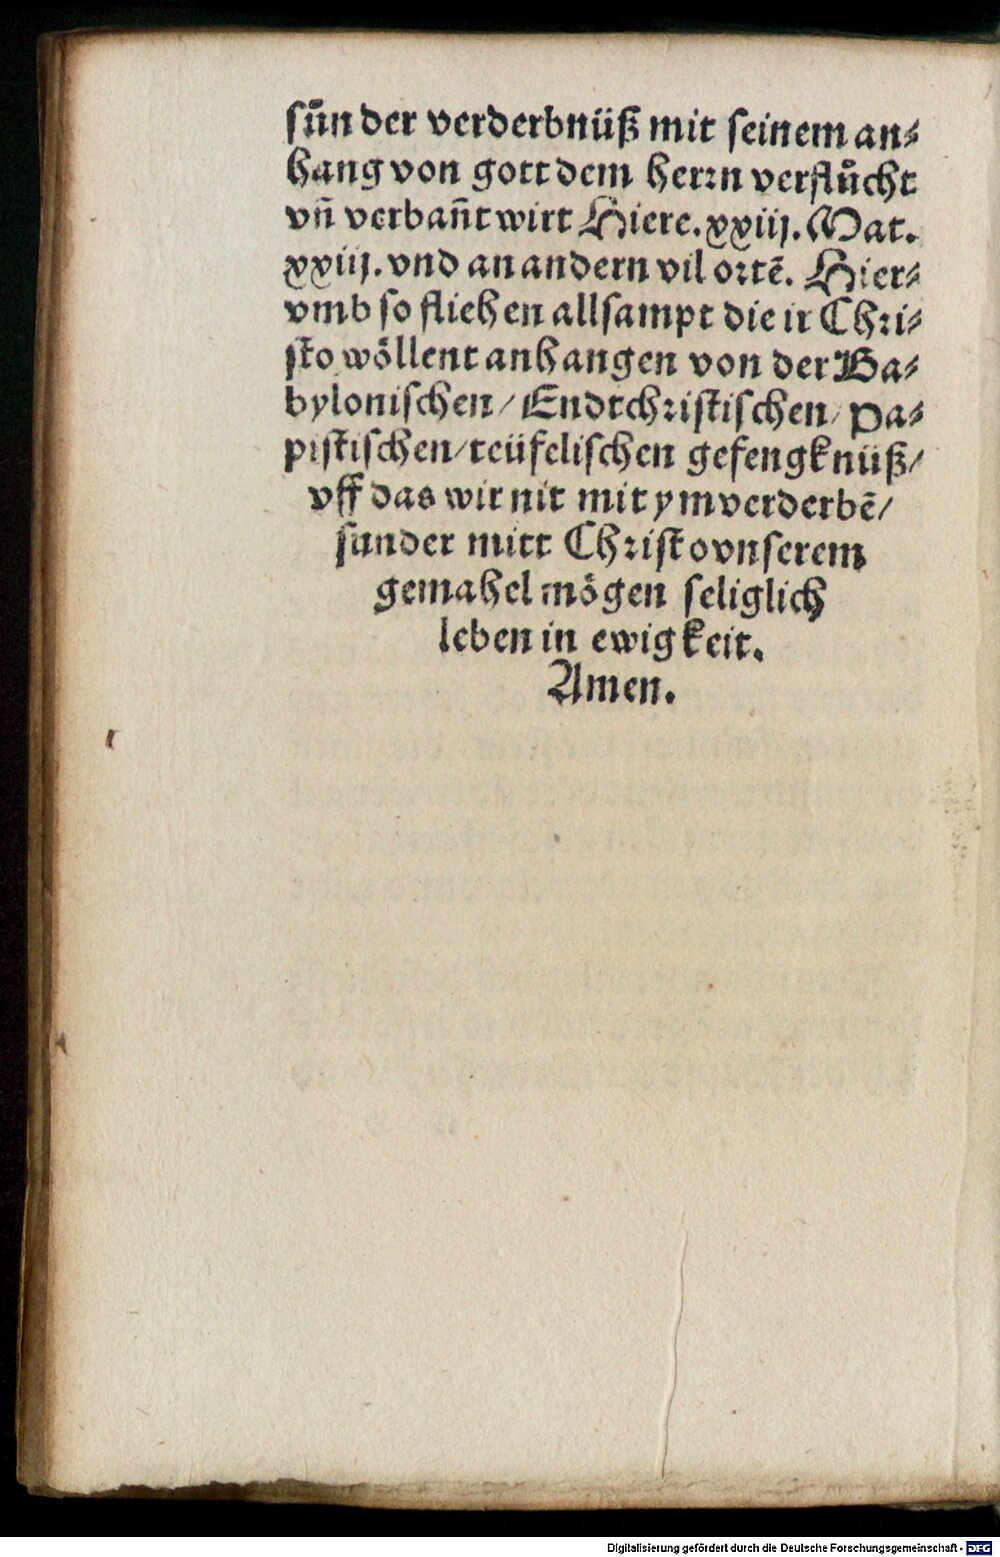 sün der verderbnüß mit seinem an⸗
hang von gott dem herrn verflůcht
vñ verbañt wirt Hiere. xxiij. Mat.
xxiij. vnd an andern vil ortẽ. Hier⸗
vmb so fliehen allsampt die ir Chri⸗
sto wöllent anhangen von der Ba⸗
bylonischen/ Endtchristischen/ Pa⸗
pistischen/ teüfelischen gefengknüß/
vff das wir nit mit ym verderbẽ/
sunder mitt Christo vnserem
gemahel mögen seliglich
leben in ewigkeit.
Amen.
Digitalisierung gefördert durch die Deutsche Forschungsgemeinschaft - DFG